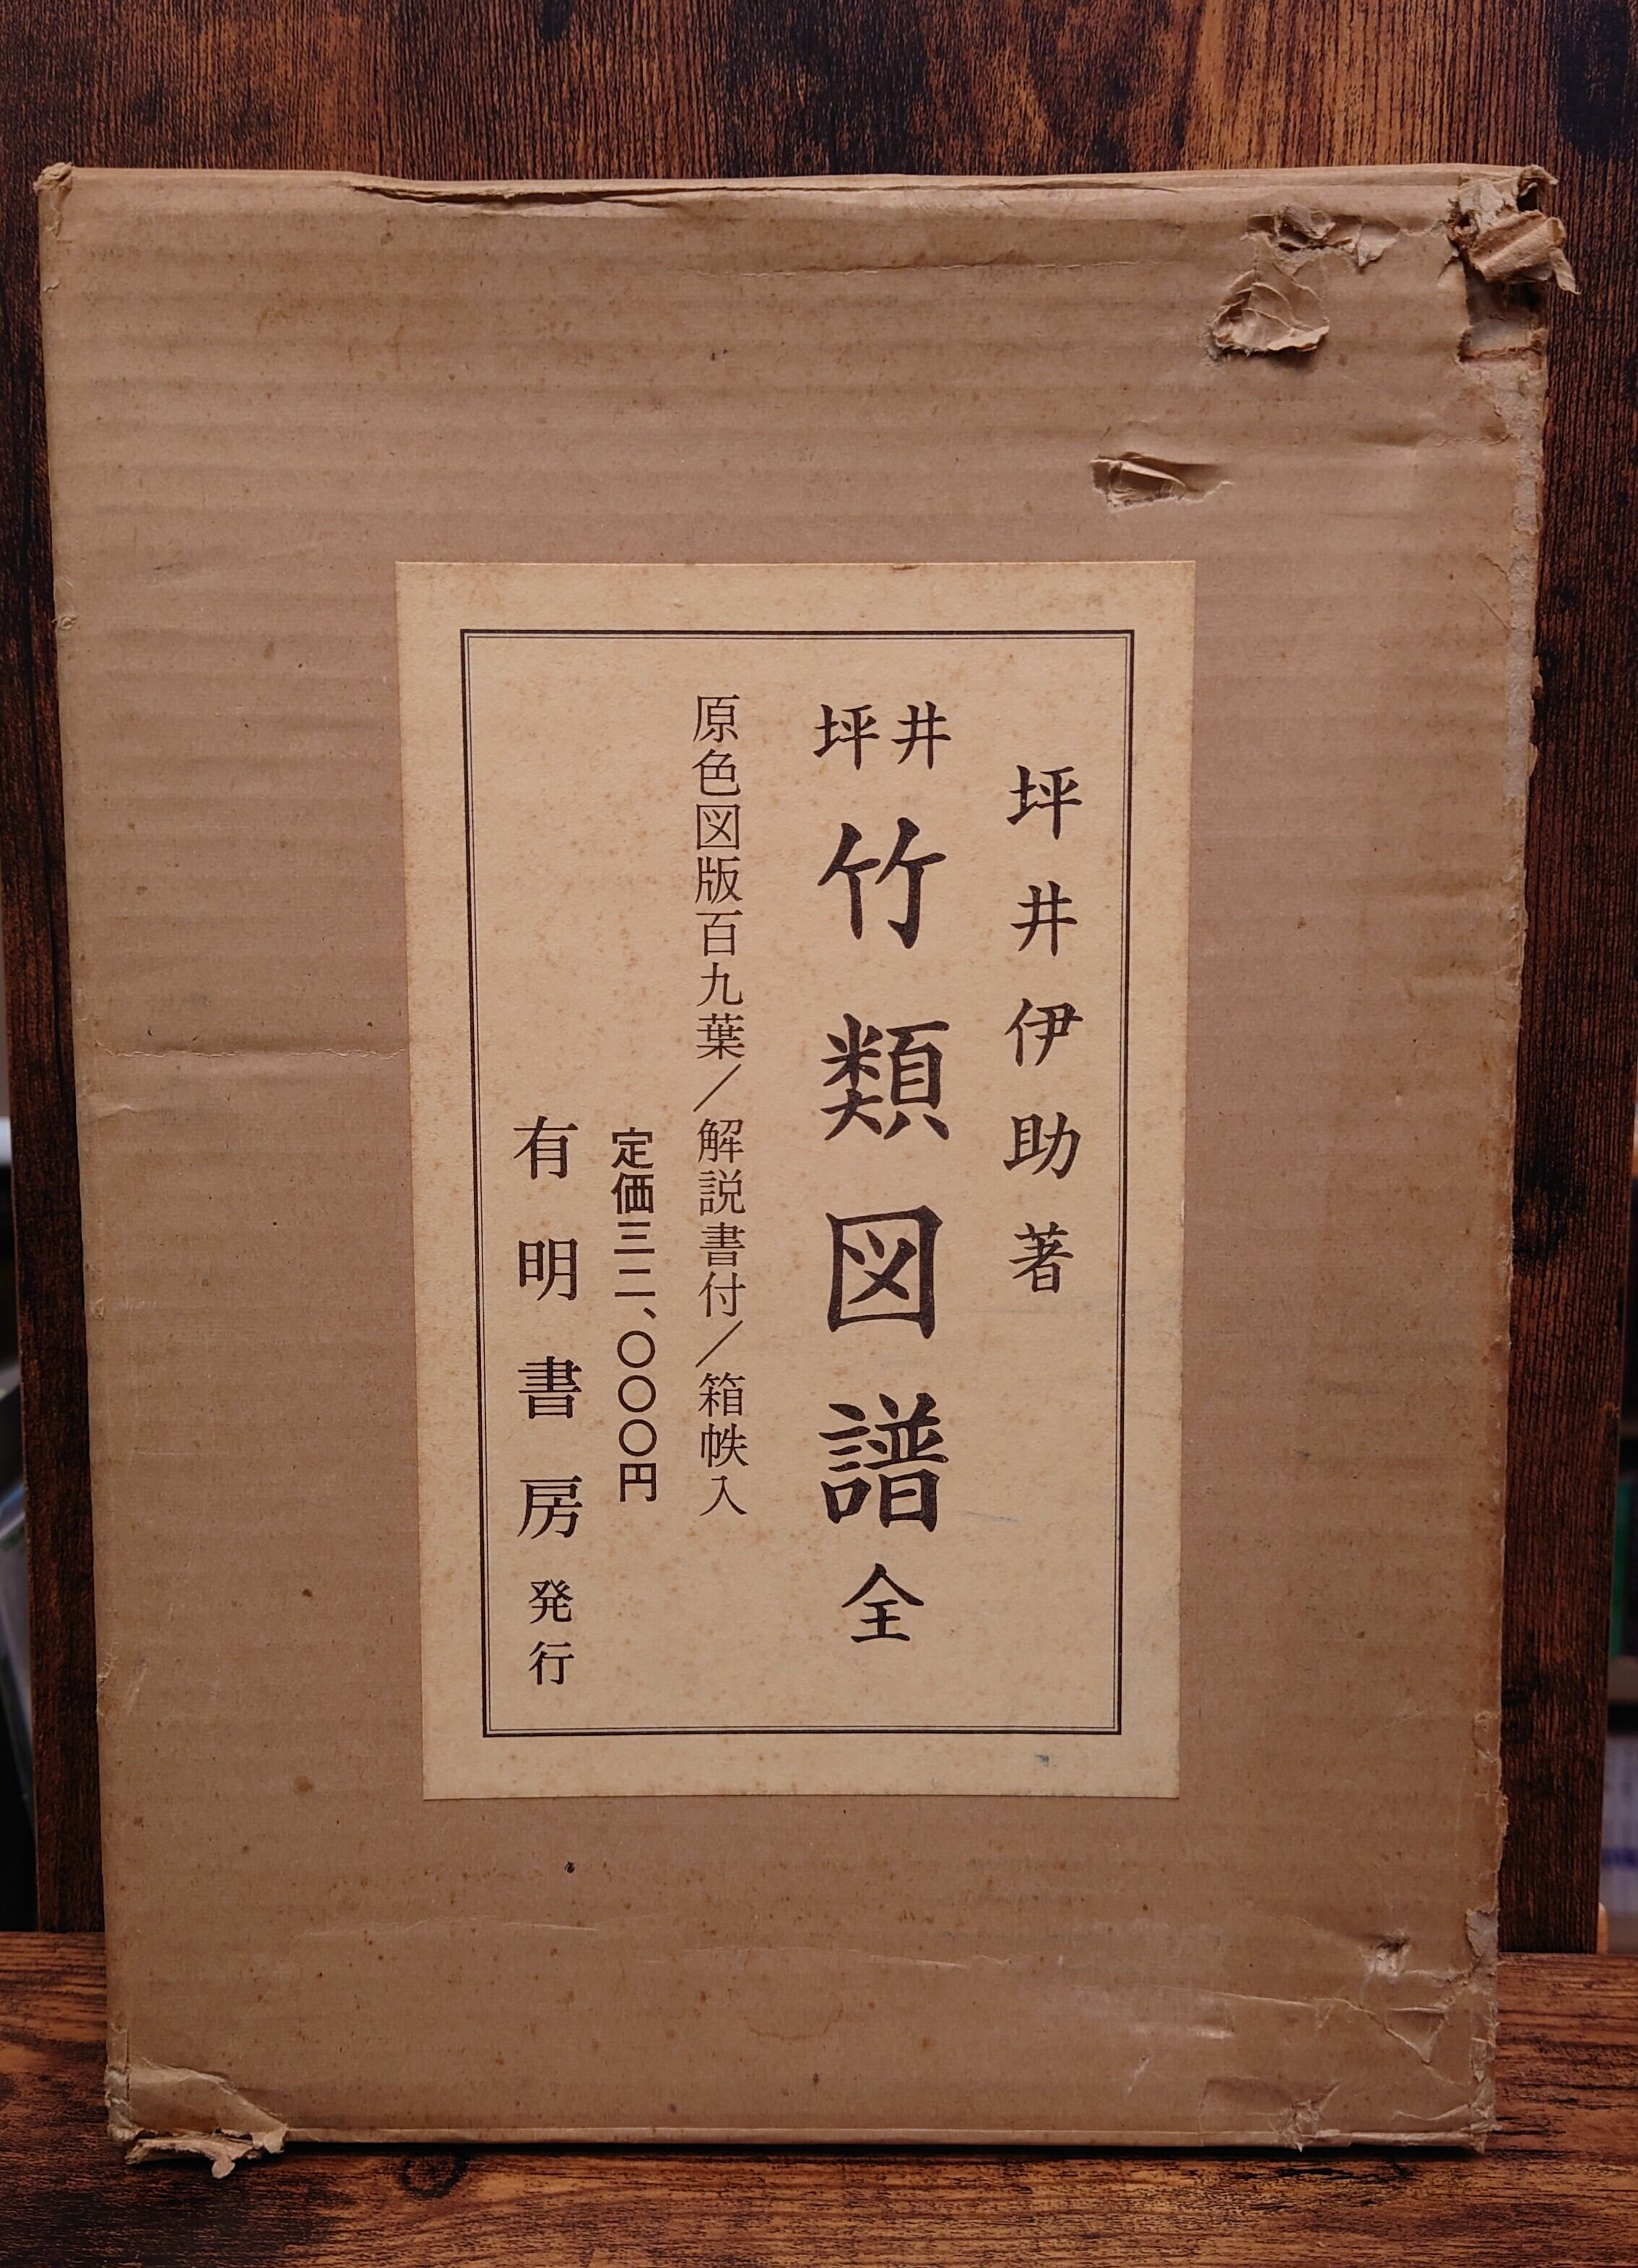 坪井伊助著
坪井竹類図譜全
原色図版百九葉／解説書付／箱帙入
定価三二、〇〇〇円
有明書房発行